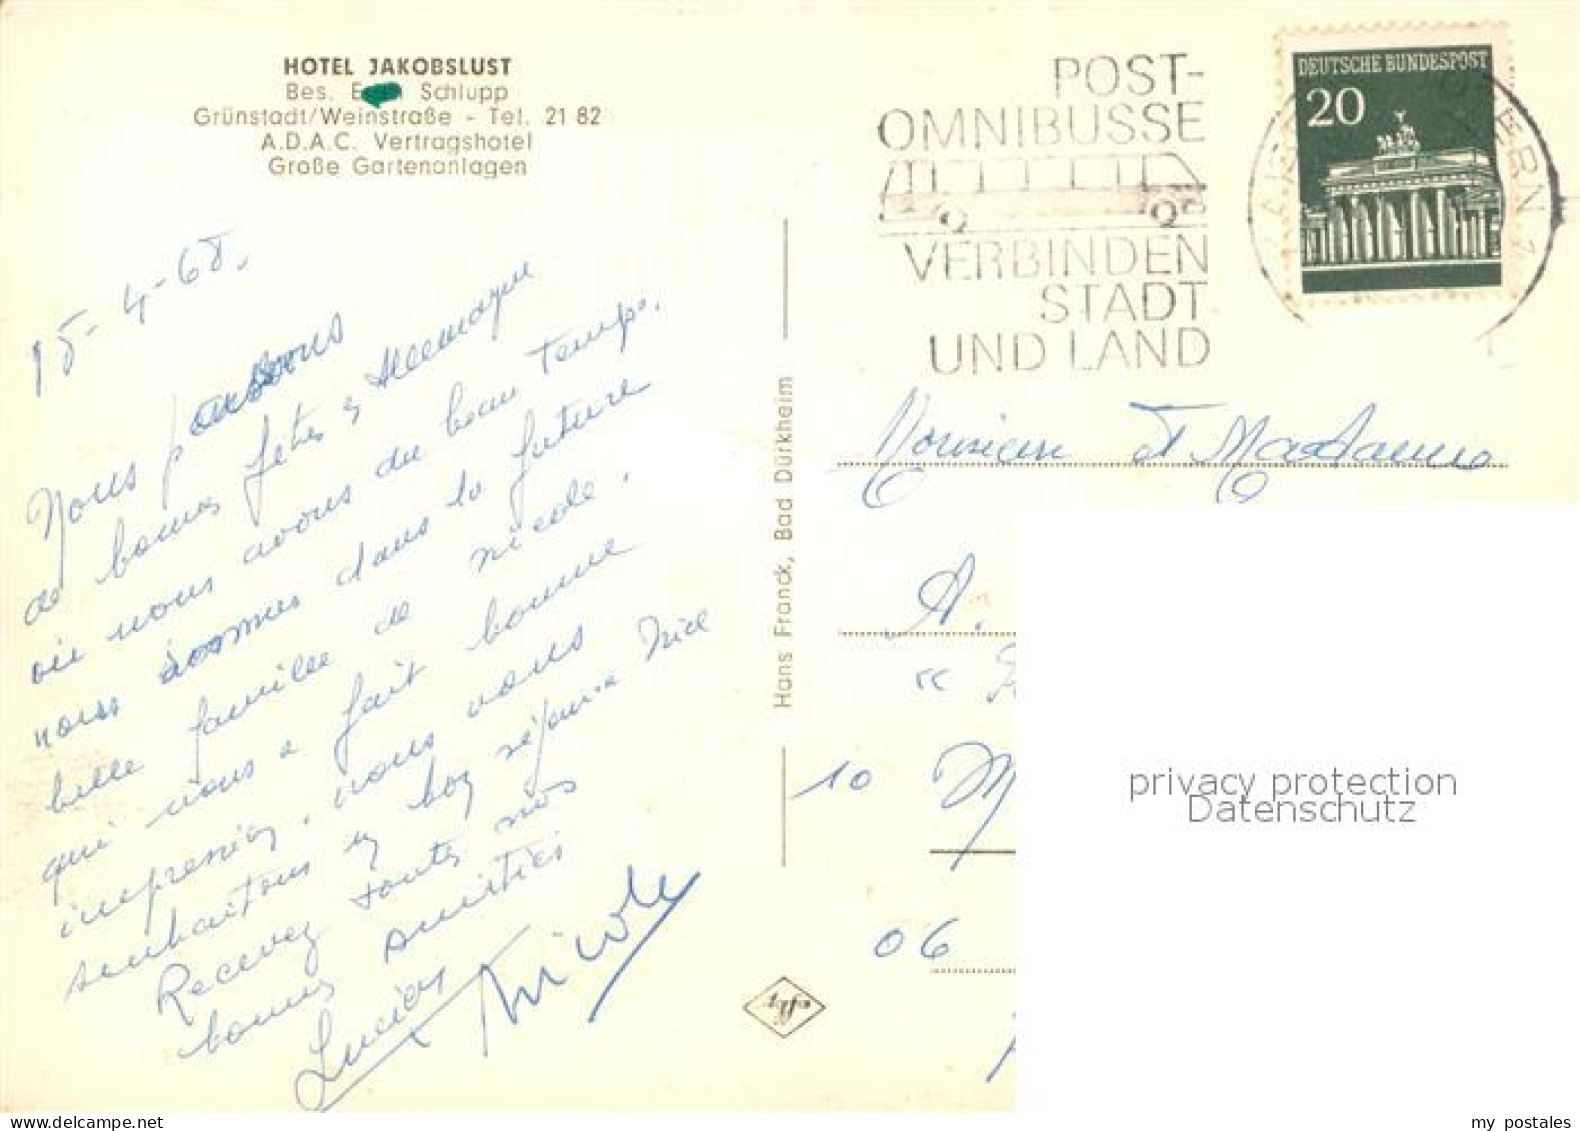 HOTEL JAKOBSLUST
Bes. Schlupp
Grünstadt/Weinstraße - Tel. 21 82
A.D.A.C. Vertragshotel
Große Gartenanlagen
15-4-68.
Nous passons
de bonnes fêtes en Allemagne
où nous avons du beau temps.
nous sommes dans la future
belle famille de Nicole.
qui nous a fait bonne
impression. nous vous
souhaitons un bon séjour à Nice
Recevez toutes nos
bonnes amitiés
Lucien Nicole
Hans Franck, Bad Dürkheim
Agfa
POST-
OMNIBUSSE
VERBINDEN
STADT
UND LAND
DEUTSCHE BUNDESPOST
20
Monsieur et Madame
A.
"
10 M
06
privacy protection
Datenschutz
my postales